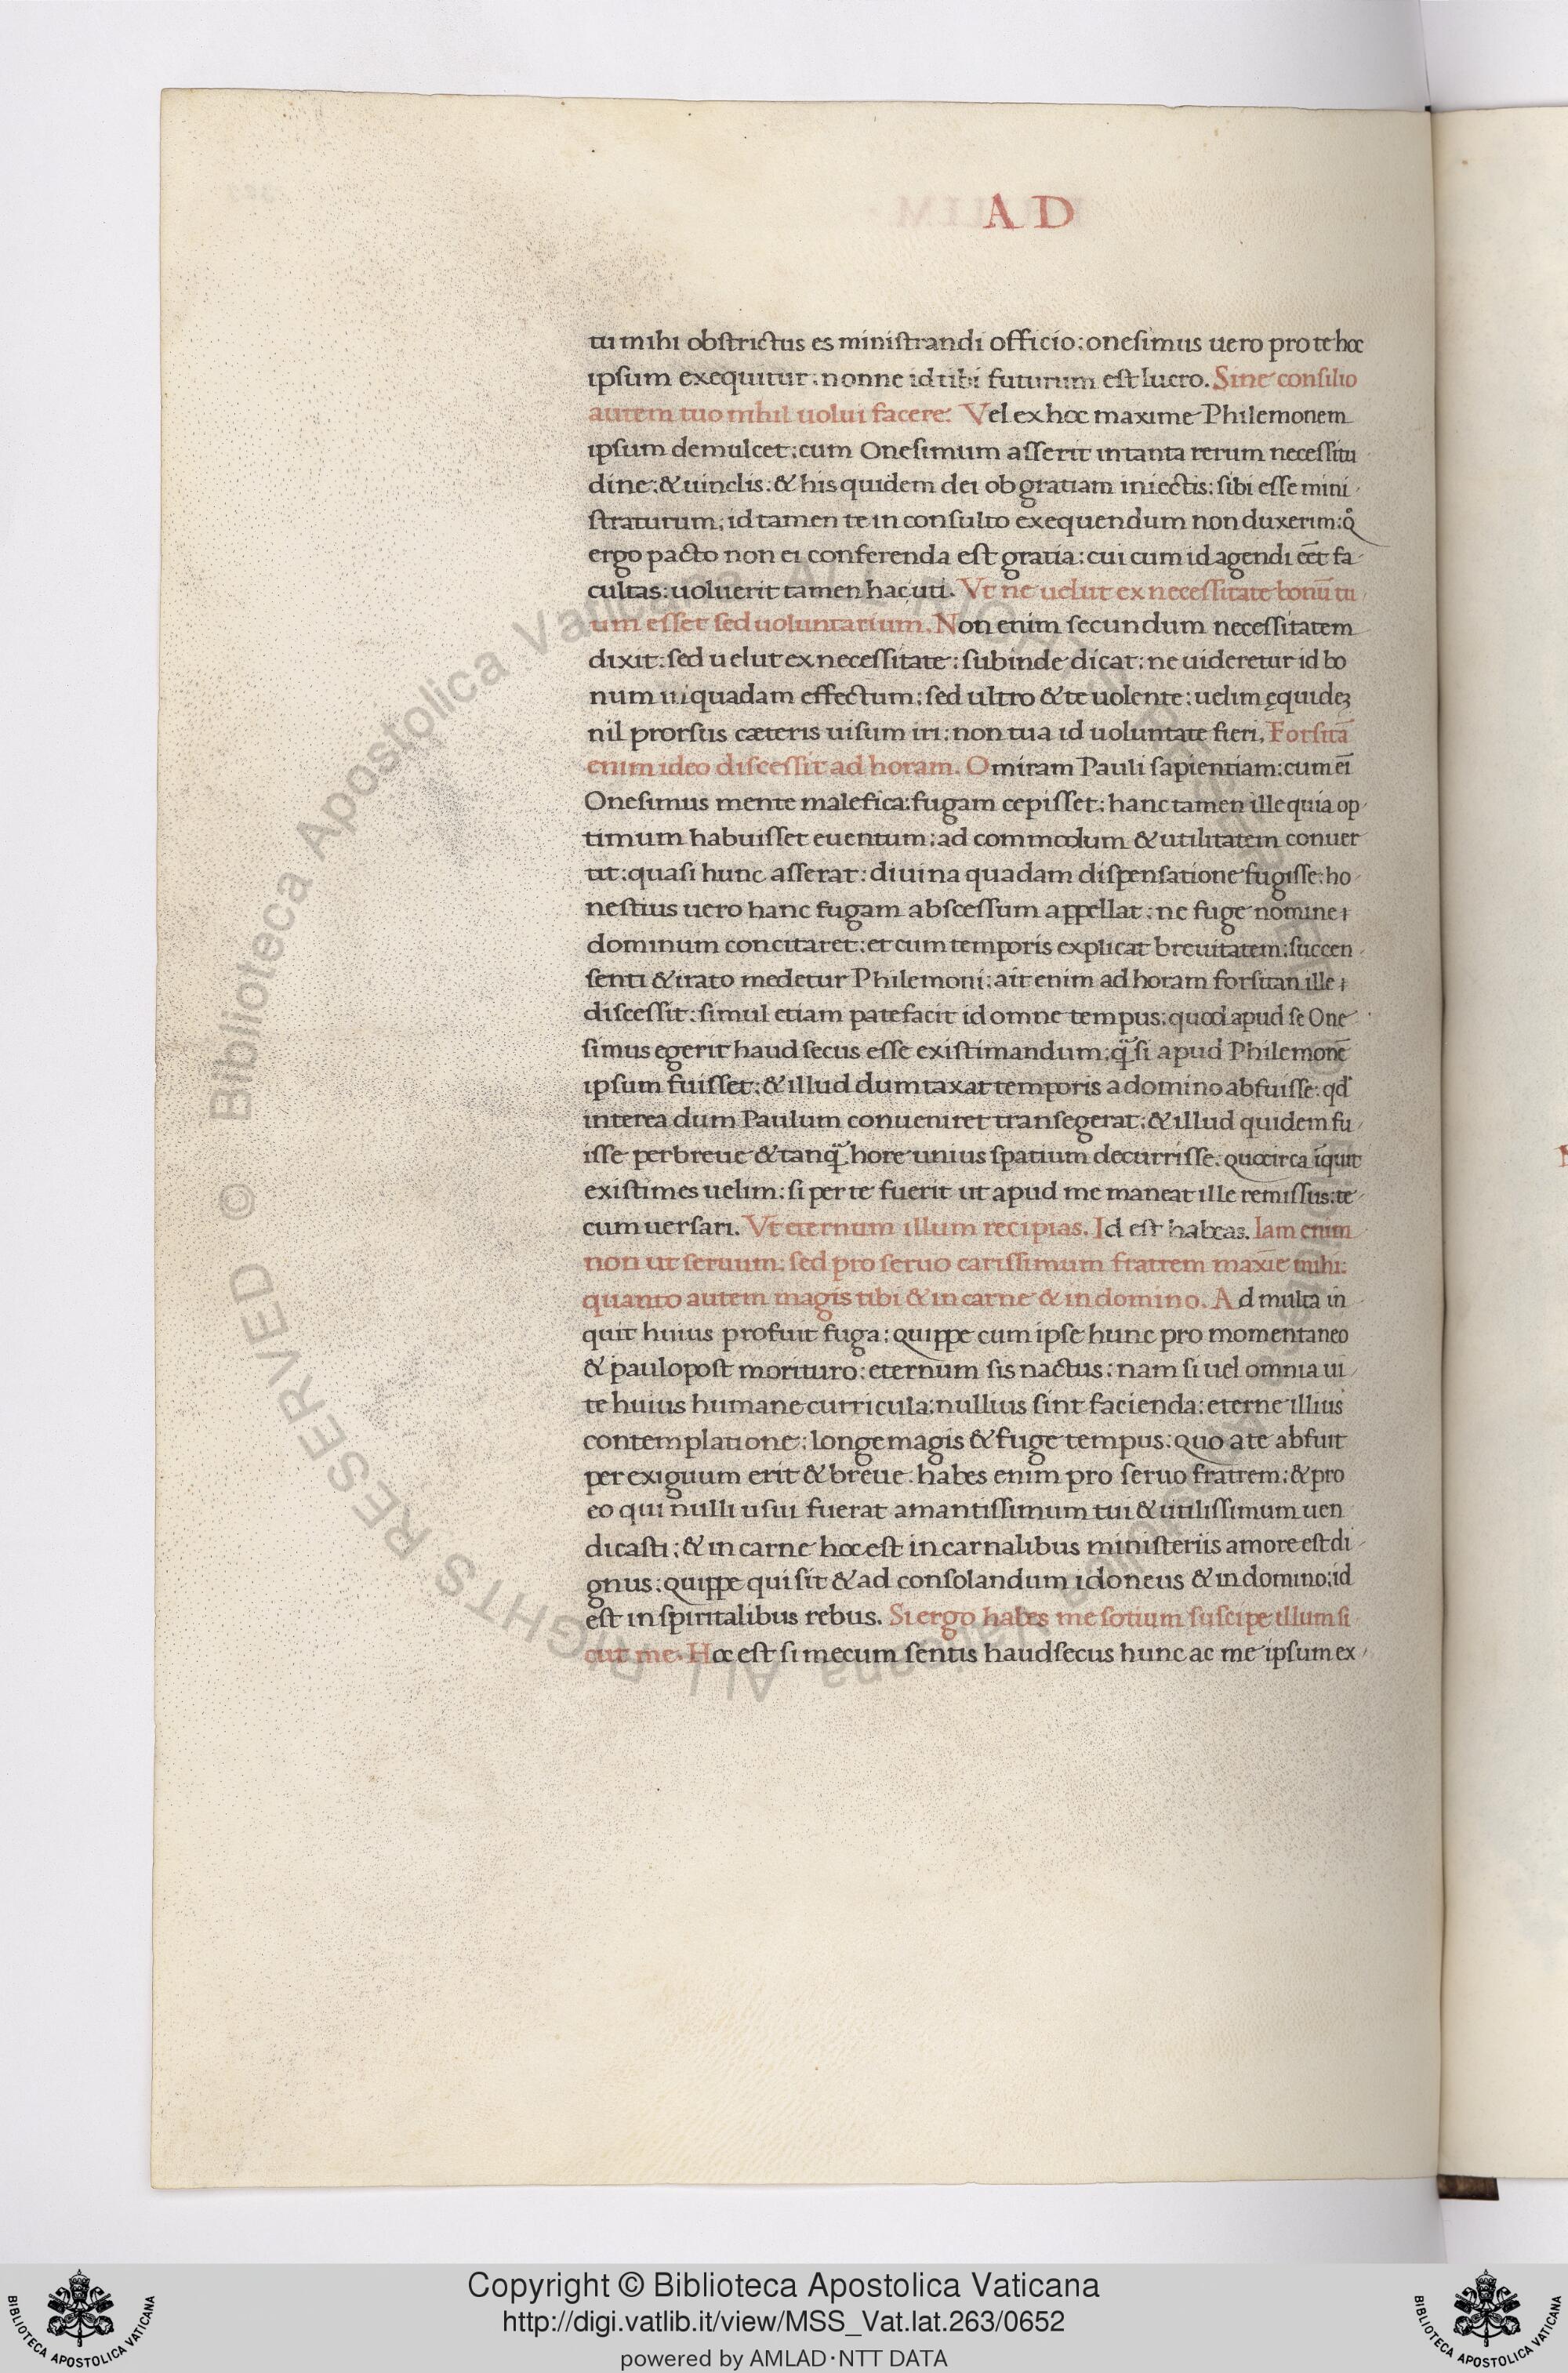 AD
tu mihi obstrictus es ministrandi officio: onesimus uero pro te hoc
ipsum exequitur: nonne id tibi futurum est lucro. Sine consilio
autem tuo nihil uolui facere. Vel ex hoc maxime Philemonem
ipsum demulcet: cum Onesimum asserit in tanta rerum necessitu
dine: & uinclis: & his quidem dei ob gratiam iniectis: sibi esse mini-
straturum: id tamen te in consulto exequendum non duxerim: q̊
ergo pacto non ei conferenda est gratia: cui cum id agendi eēt fa-
cultas: uoluerit tamen hac uti. Vt ne uelut ex necessitate bonū tu-
um esset sed uoluntarium. Non enim secundum necessitatem
dixit: sed uelut ex necessitate: subinde dicat: ne uideretur id bo
num ui quadam effectum: sed ultro & te uolente: uelim ęquideꝫ
nil prorsus cæteris uisum iri: non tua id uoluntate fieri. Forsitā
enim ideo discessit ad horam. O miram Pauli sapientiam: cum eī
Onesimus mente malefica: fugam cepisset: hanc tamen ille quia op-
timum habuisset euentum: ad commodum & utilitatem conuer
tit: quasi hunc asserat: diuina quadam dispensatione fugisse: ho-
nestius uero hanc fugam abscessum appellat: ne fuge nomine
dominum concitaret: et cum temporis explicat breuitatem: succen-
senti & irato medetur Philemoni: ait enim ad horam forsitan ille
discessit: simul etiam patefacit id omne tempus: quod apud se One-
simus egerit haud secus esse existimandum: q̃ si apud Philemonē
ipsum fuisset: & illud dumtaxat temporis a domino abfuisse: qd̓
interea dum Paulum conueniret transegerat: & illud quidem fu-
isse perbreue & tanq̃ hore unius spatium decurrisse. quocirca īquit
existimes uelim: si per te fuerit ut apud me maneat ille remissus: te-
cum uersari. Vt eternum illum recipias. Id est habeas. Iam enim
non ut seruum: sed pro seruo carissimum fratrem maxīe mihi:
quanto autem magis tibi & in carne & in domino. Ad multa in
quit huius profuit fuga: quippe cum ipse hunc pro momentaneo
& paulopost morituro: eternum sis nactus: nam si uel omnia ui-
te huius humane curricula: nullius sint facienda: eterne illius
contemplatione: longe magis & fuge tempus: quo a te abfuit
per exiguum erit & breue: habes enim pro seruo fratrem: & pro
eo qui nulli usui fuerat amantissimum tui & utilissimum uen
dicasti: & in carne hoc est in carnalibus ministeriis amore est di-
gnus: quippe qui sit & ad consolandum idoneus & in domino: id
est in spiritalibus rebus. Si ergo habes me sotium suscipe illum si
cut me. Hoc est si mecum sentis haud secus hunc ac me ipsum ex-
Copyright © Biblioteca Apostolica Vaticana
http://digi.vatlib.it/view/MSS_Vat.lat.263/0652
powered by AMLAD·NTT DATA
BIBLIOTECA APOSTOLICA VATICANA
BIBLIOTECA APOSTOLICA VATICANA